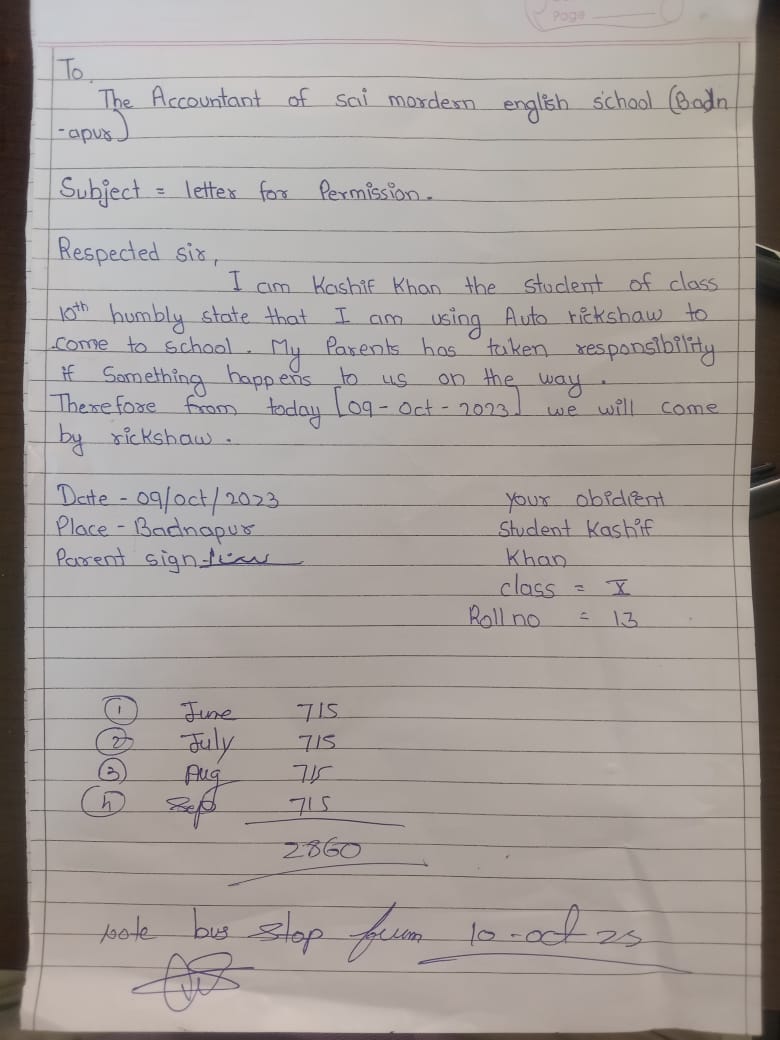 Page
To,
The Accountant of sai mordern english school (Badn
-apur)
Subject = letter for Permission.
Respected sir,
I am Kashif Khan the student of class
10th humbly state that I am using Auto rickshaw to
come to school. My Parents has taken responsibility
if Something happens to us on the way.
Therefore from today [09-Oct-2023] we will come
by rickshaw.
Date - 09/Oct/2023 Your obidient
Place - Badnapur Student Kashif
Parent sign Khan
class = X
Roll no = 13
1 June 715
2 July 715
3 Aug 715
4 Sept 715
2860
note bus stop from 10-oct